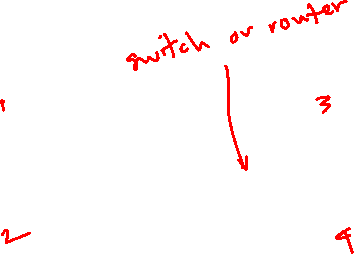 switch or router
1
3
2
4